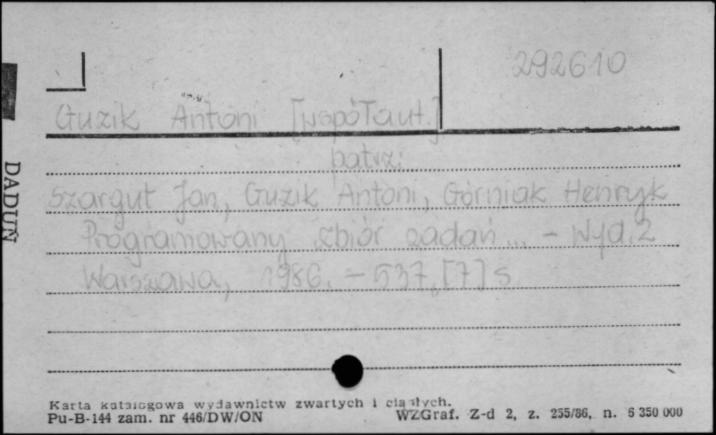 292610
Guzik Antoni [współaut.]
patrz:
Szargut Jan, Guzik Antoni, Górniak Henryk
Programowany zbiór zadań ... - Wyd. 2
Warszawa, 1986. - 537, [7] s.
DADUŃ
Karta katalogowa wydawnictw zwartych i ciągłych.
Pu-B-144 zam. nr 446/DW/ON
WZGraf. Z-d 2, z. 255/86, n. 5 350 000